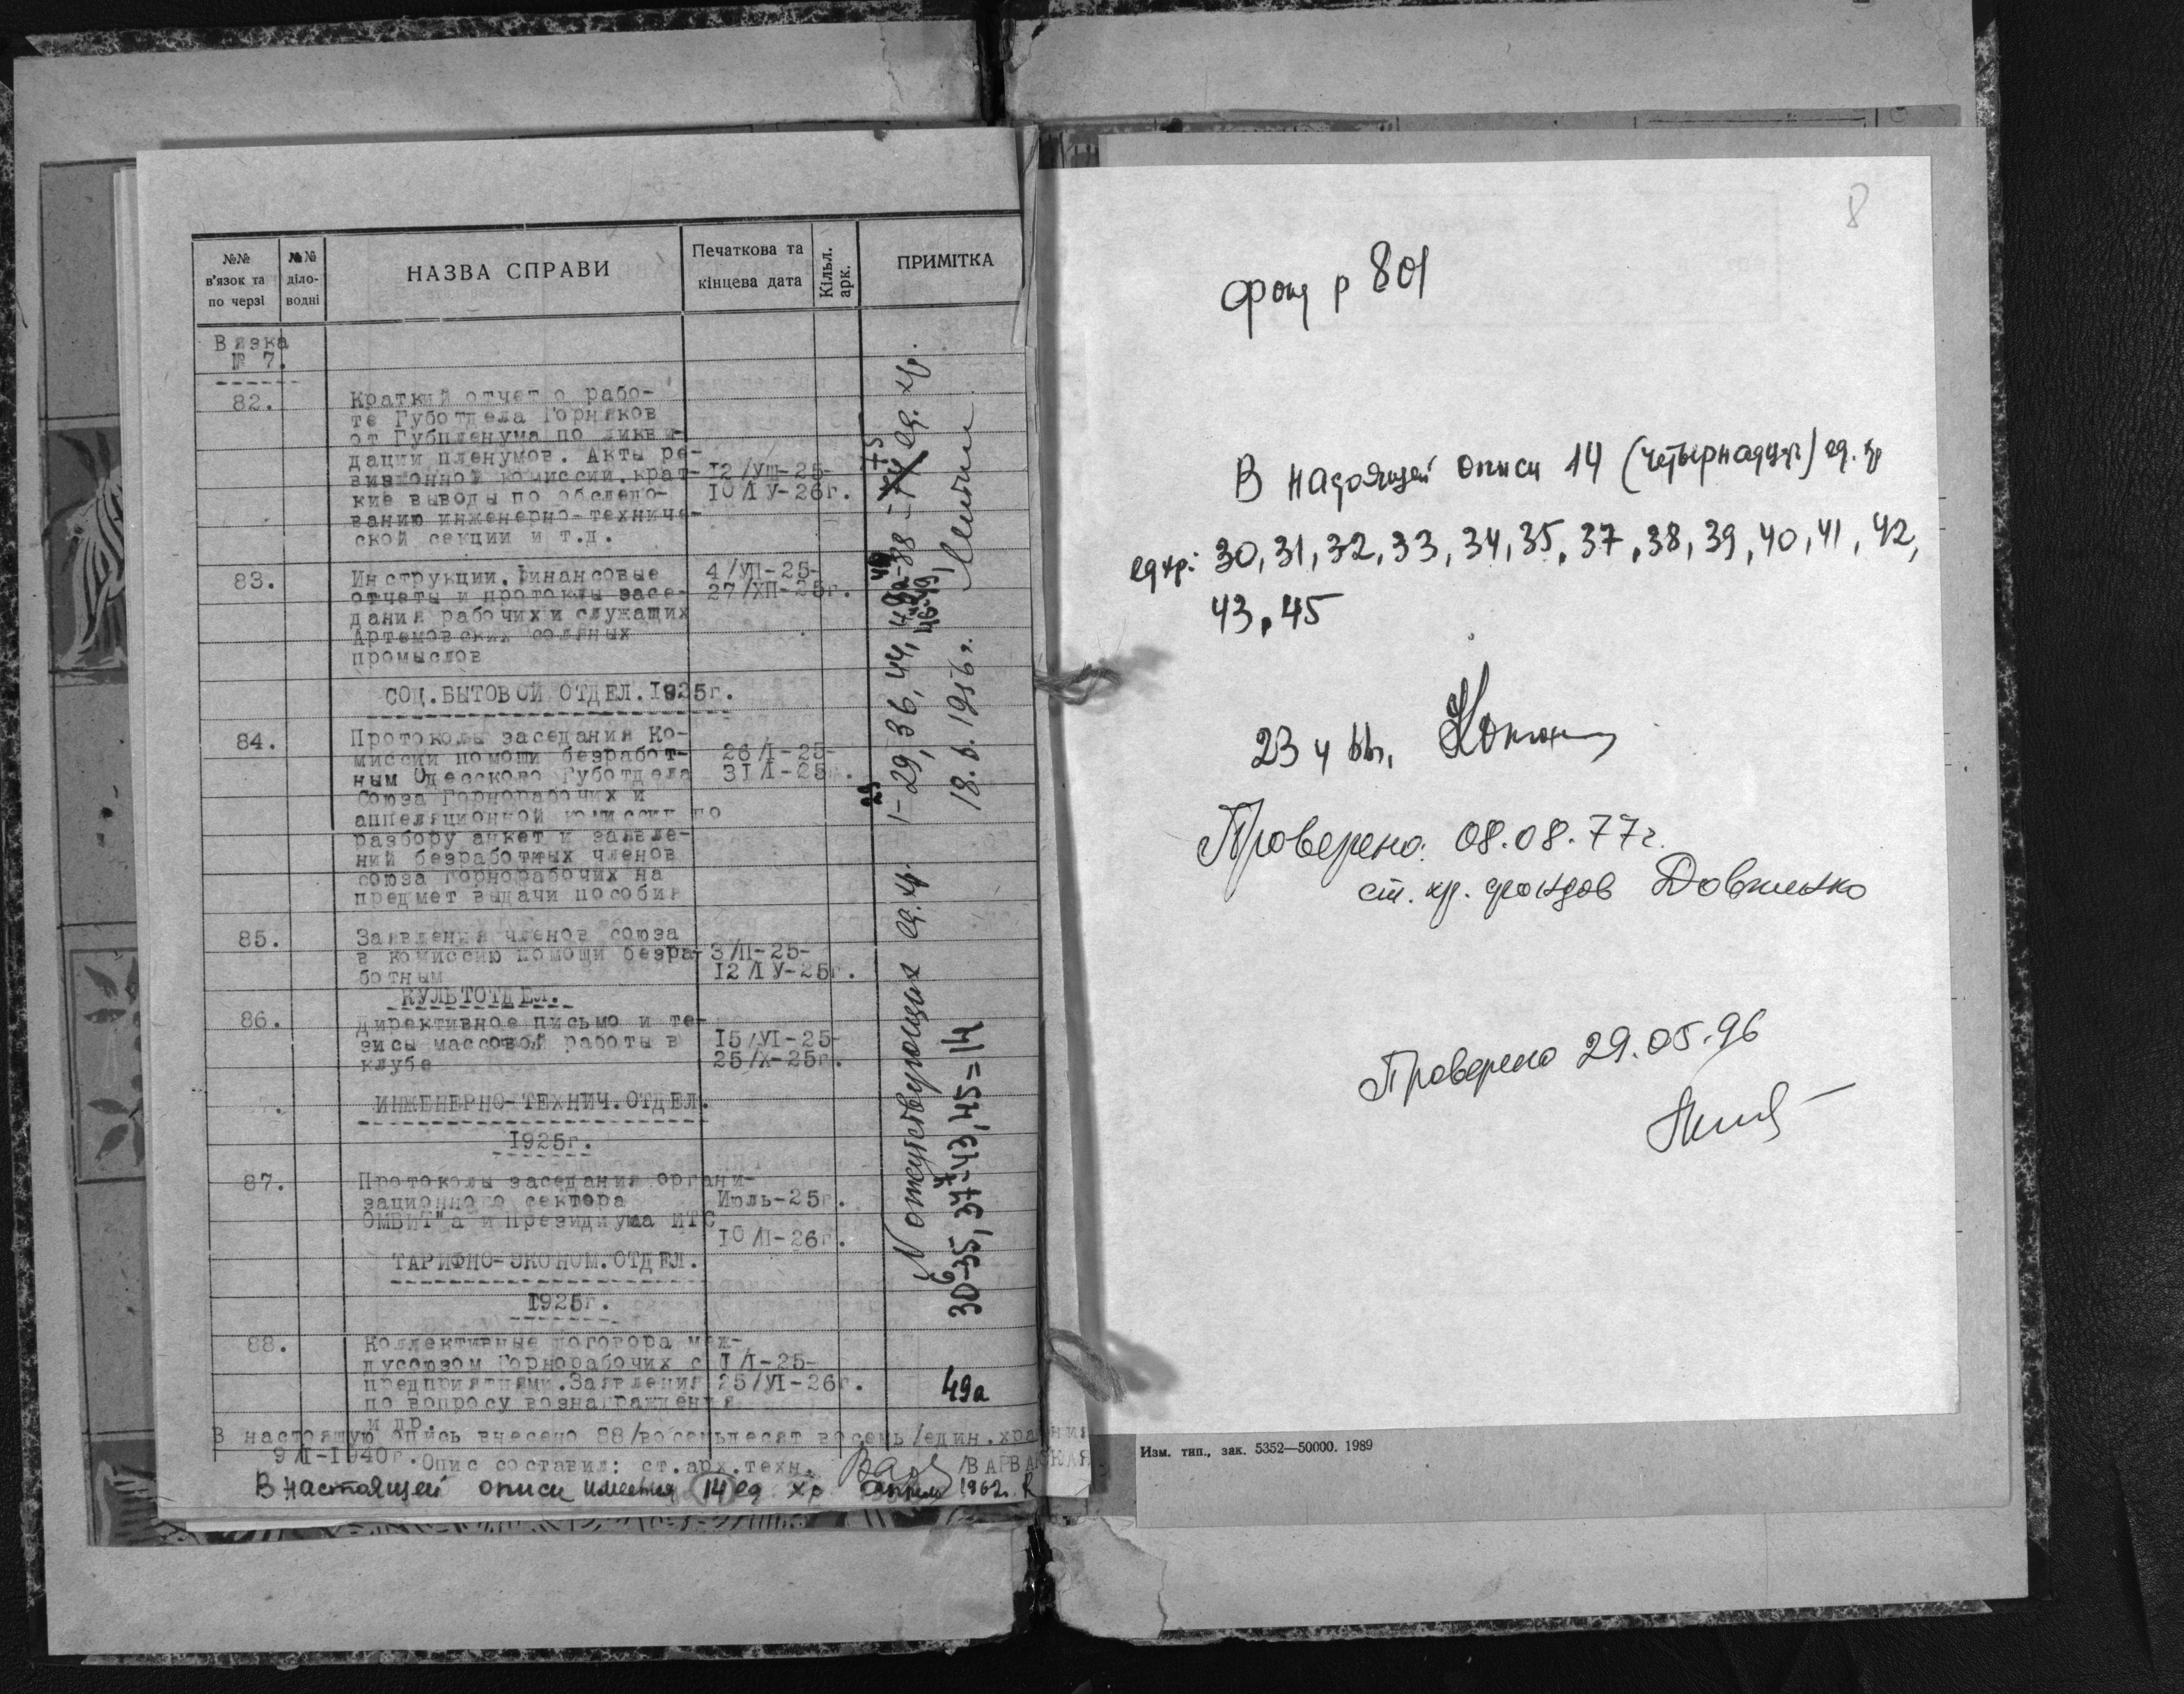 №№ в'язок та по черзі
№№ діло-водні
НАЗВА СПРАВИ
Печаткова та кінцева дата
Кільк. арк.
ПРИМІТКА
Вязка
№ 7.
82.
Краткий отчет о рабо-
те Губотдела Горняков
от Губпленума по ликви-
дации пленумов. Акты ре-
визионной комиссии.крат-
кие выводы по обследо-
ванию инженерно-техниче-
ской секции и т.д.
12/УШ-25-
10/1У-26г.
83.
Инструкции.Финансовые
отчеты и протоколы засе-
дания рабочих и служащих
Артемовских соляных
промыслов
4/УП-25-
27/ХП-25г.
СОЦ.БЫТОВОЙ ОТДЕЛ.1925г.
84.
Протоколы заседания Ко-
миссии помощи безработ-
ным Одесского Губотдела
Союза Горнорабочих и
аппеляционной комиссии по
разбору анкет и заявле-
ний безработных членов
союза горнорабочих на
предмет выдачи пособия
26/I-25-
31/I-25г.
85.
Заявления членов союза
в комиссию помощи безра-
ботным
3/П-25-
12/1У-25г.
КУЛЬТОТДЕЛ.
86.
Директивное письмо и те-
зисы массовой работы в
клубе
15/УI-25-
25/Х-25г.
ИНЖЕНЕРНО-ТЕХНИЧ.ОТДЕЛ.
1925г.
87.
Протоколы заседания органи-
зационного сектора
ОМБИТ"а и Президиума ИТС
Июль-25г.
10/П-26г.
ТАРИФНО-ЭКОНОМ.ОТДЕЛ.
1925г.
88.
Коллективные договора меж-
дусоюзом Горнорабочих с
предприятиями.Заявления
по вопросу вознаграждения
и др.
I/I-25-
25/УI-26г.
В настоящую опись внесено 88/восемьдесят восемь/един.хранния
9/I-1940г. Опис составил: ст.арх.техн. /ВАРВАНСКАЯ
В настоящей описи имеется 14 ед хр апреля 1962г.
N отсутствующих ед. хр. 1-29, 36, 44, 88 - 75 ед. хр.
46-49,
30-35, 37-43, 45 = 14
18. 6. 1956г.
49а
8
фонд р 801
В настоящей описи 14 (четырнадцат) ед. хр
ед хр: 30, 31, 32, 33, 34, 35, 37, 38, 39, 40, 41, 42,
43, 45
23
Проверено: 08.08.77г.
ст. хр. фондов Довженко
Проверено 29.05.96
Изм. тип., зак. 5352—50000. 1989